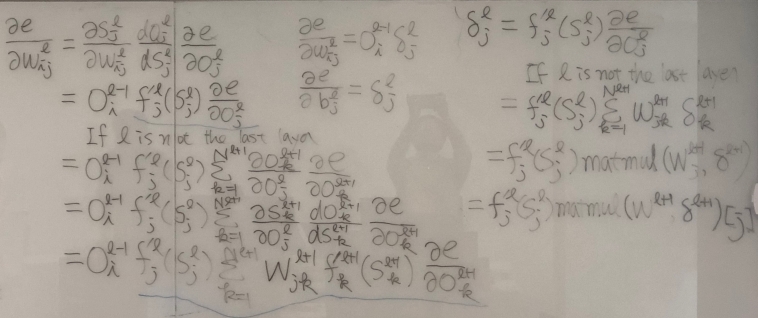 ∂e/∂w_{ij}^ℓ = ∂s_j^ℓ/∂w_{ij}^ℓ do_j^ℓ/ds_j^ℓ ∂e/∂o_j^ℓ
= o_i^{ℓ-1} f'_j^ℓ(s_j^ℓ) ∂e/∂o_j^ℓ
If ℓ is not the last layer
= o_i^{ℓ-1} f'_j^ℓ(s_j^ℓ) Σ_{k=1}^{N^{ℓ+1}} ∂o_k^{ℓ+1}/∂o_j^ℓ ∂e/∂o_k^{ℓ+1}
= o_i^{ℓ-1} f'_j^ℓ(s_j^ℓ) Σ_{k=1}^{N^{ℓ+1}} ∂s_k^{ℓ+1}/∂o_j^ℓ do_k^{ℓ+1}/ds_k^{ℓ+1} ∂e/∂o_k^{ℓ+1}
= o_i^{ℓ-1} f'_j^ℓ(s_j^ℓ) Σ_{k=1}^{N^{ℓ+1}} w_{jk}^{ℓ+1} f'_k^{ℓ+1}(s_k^{ℓ+1}) ∂e/∂o_k^{ℓ+1}
∂e/∂w_{ij}^ℓ = o_i^{ℓ-1} δ_j^ℓ
∂e/∂b_j^ℓ = δ_j^ℓ
δ_j^ℓ = f'_j^ℓ(s_j^ℓ) ∂e/∂o_j^ℓ
If ℓ is not the last layer
= f'_j^ℓ(s_j^ℓ) Σ_{k=1}^{N^{ℓ+1}} w_{jk}^{ℓ+1} δ_k^{ℓ+1}
= f'_j^ℓ(s_j^ℓ) matmul(w_j^{ℓ+1}, δ^{ℓ+1})
= f'_j^ℓ(s_j^ℓ) matmul(w^{ℓ+1}, δ^{ℓ+1})[j]